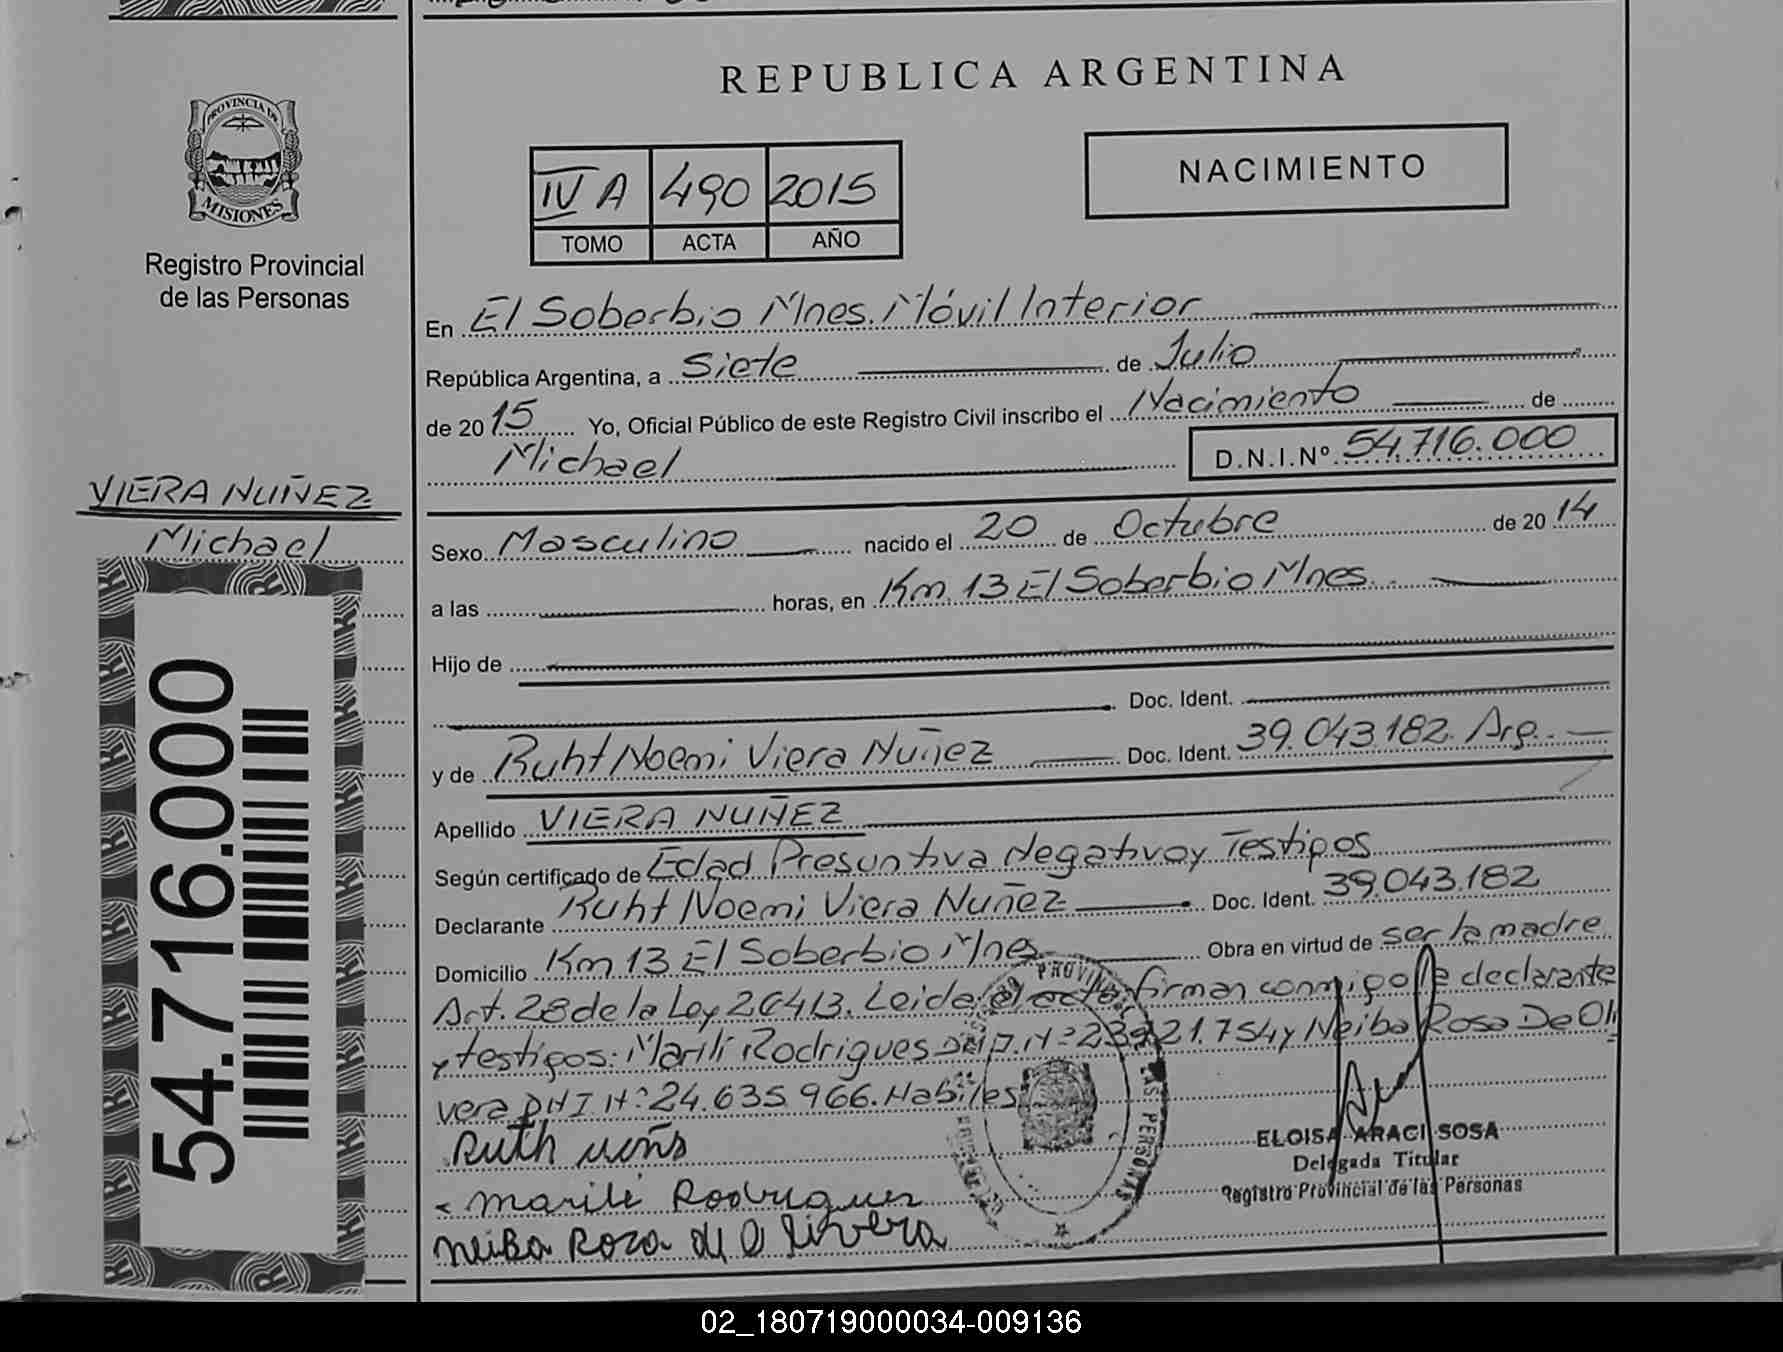 REPUBLICA ARGENTINA
PROVINCIA DE
MISIONES
Registro Provincial
de las Personas
IV A 490 2015
TOMO ACTA AÑO
NACIMIENTO
En El Soberbio Mnes. Móvil Interior
República Argentina, a Siete de Julio
de 2015 Yo, Oficial Público de este Registro Civil inscribo el Nacimiento de
Michael D.N.I.Nº 54.716.000
VIERA NUÑEZ
Michael
54.716.000
Sexo Masculino nacido el 20 de Octubre de 2014
a las horas, en Km 13 El Soberbio Mnes.
Hijo de
Doc. Ident.
y de Ruht Noemi Viera Nuñez Doc. Ident. 39.043.182. Arg.
Apellido VIERA NUÑEZ
Según certificado de Edad Presuntiva Negativo y Testigos
Declarante Ruht Noemi Viera Nuñez Doc. Ident. 39.043.182
Domicilio Km 13 El Soberbio Mnes Obra en virtud de ser la madre
Art. 28 de la Ley 26413. Leida el acta firman conmigo la declarante
y testigos: Marili Rodrigues D.N.Nº 23.921.754 y Neiba Rosa De Oli
vera DNI Nº 24.635.966. Habiles
Ruth
Marili Rodrigues
Neiba Roza de Olivera
LAS PERSONAS
ELOISA ARACI SOSA
Delegada Titular
Registro Provincial de las Personas
02_180719000034-009136